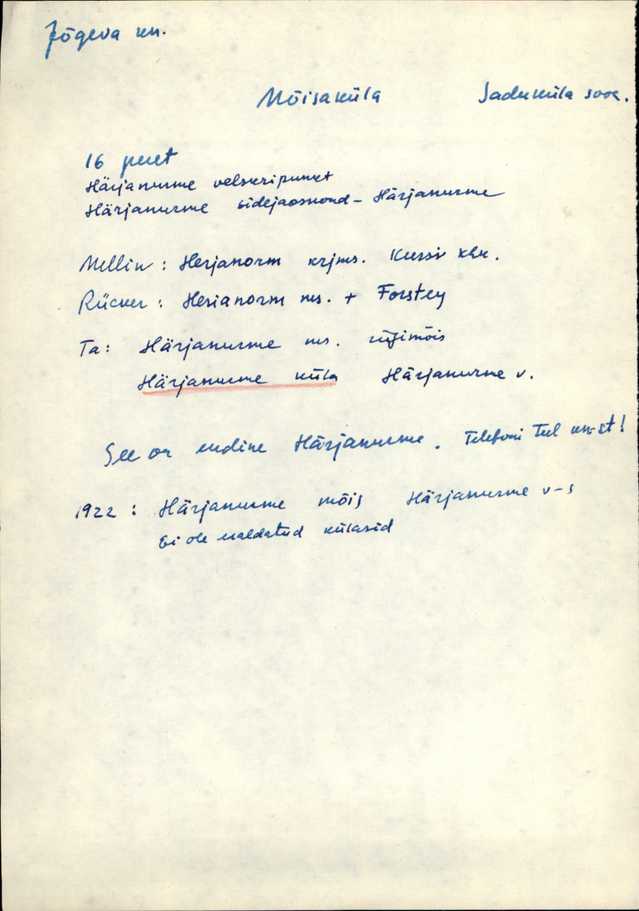 Jõgeva rn.
Mõisaküla Saduküla sooc.
16 peret
Härjanurme velskripunkt
Härjanurme sidejaoskond - Härjanurme
Mellin: Herjanorm krjms. Kursi khk.
Rücker: Herianorm ms. + Forstey
Ta: Härjanurme ms. riigimõis
Härjanurme küla Härjanurme v.
See on endine Härjanurme. Telefoni teel kn-st!
1922: Härjanurme mõis Härjanurme v-s
Ei ole naldatud külasid